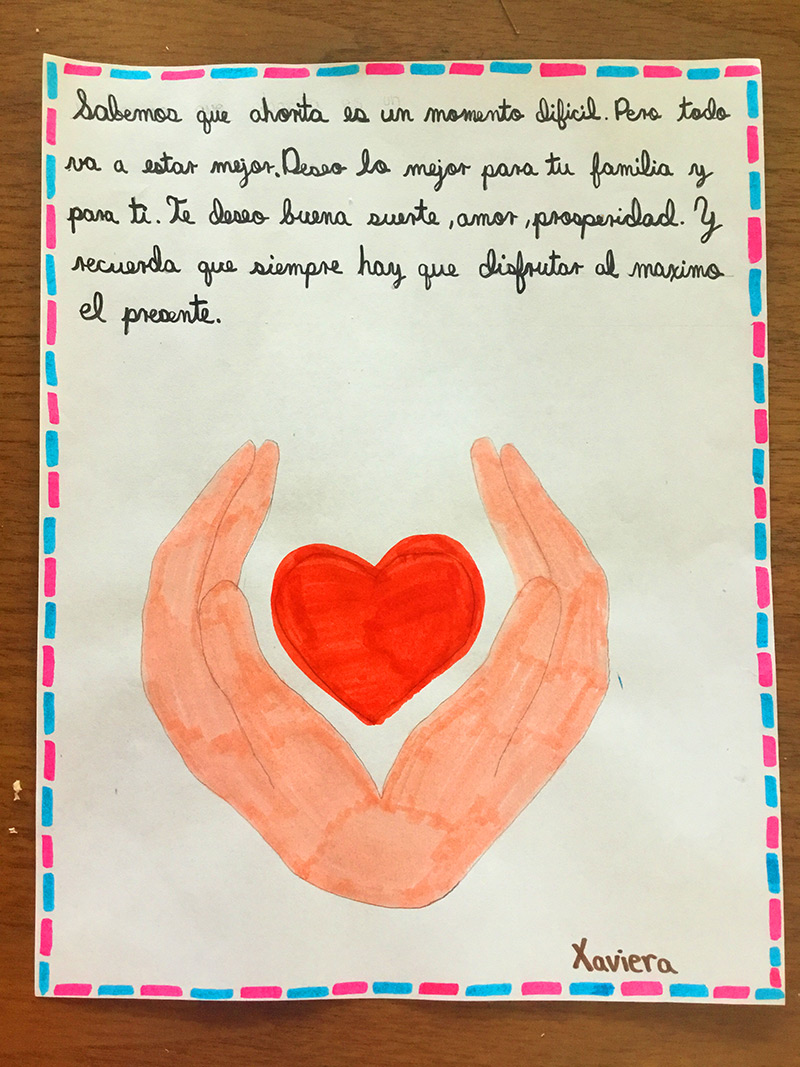 Sabemos que ahorita es un momento dificil. Pero todo
va a estar mejor. Deseo lo mejor para tu familia y
para ti. Te deseo buena suerte, amor, prosperidad. Y
recuerda que siempre hay que disfrutar al maximo
el presente.
Xaviera